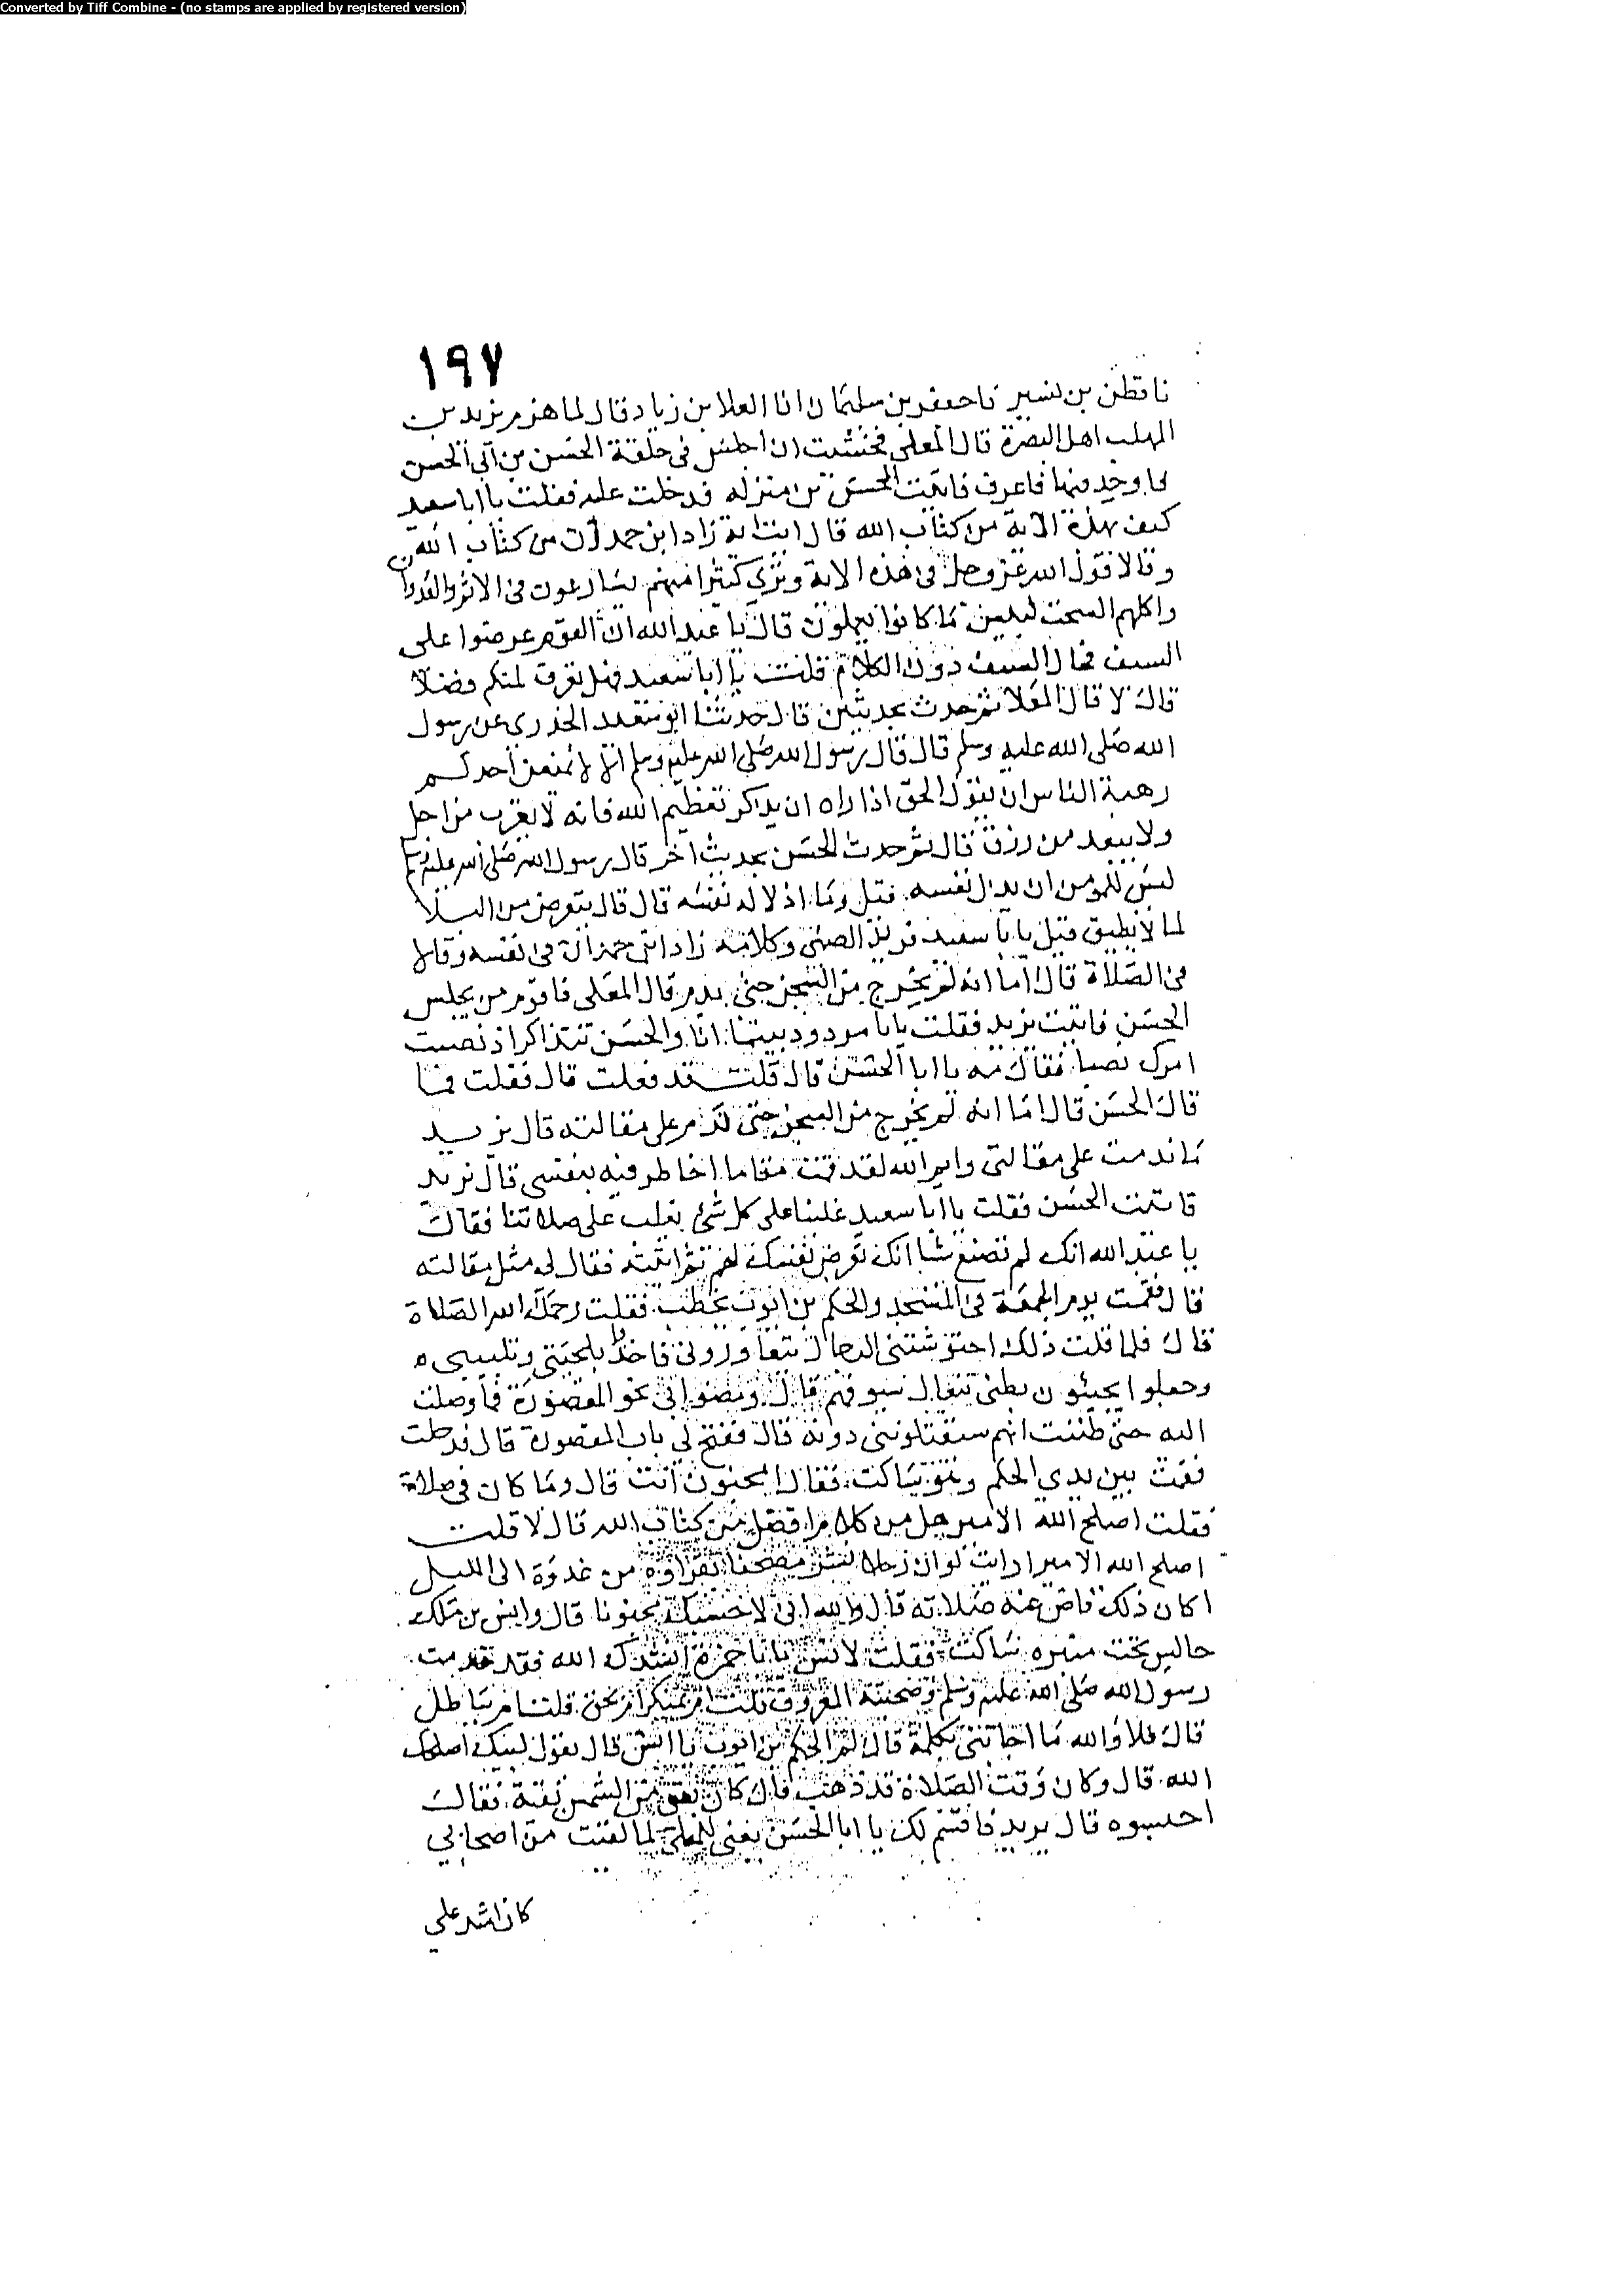 Converted by Tiff Combine - (no stamps are applied by registered version)
١٩٧
نا قطن بن نسير نا جعفر بن سليمان انا العلا بن زياد قال لما هزم يزيد بن
المهلب اهل البصرة قال المعلى فخشيت ان اجلس في حلقة الحسن بن ابي الحسن
فاوخذ فيها فاعرف فاتيت الحسن من منزله فدخلت عليه فقلت يا ابا سعيد
كيف بهذه الآية من كتاب الله قال ايت اية من كتاب الله
وقالا قول الله عز وجل في هذه الاية وترى كثيرا منهم يسارعون في الاثم والعدوان
واكلهم السحت لبئس ما كانوا يعملون قال يا عبد الله ان القوم عرضوا على
السيف فحال السيف دون الكلام قلت يا ابا سعيد فهل تعرف لمتكلم فضلا
قال لا قال المعلا ثم حدث بحديثين قال حدثنا ابو سعيد الخدري عن رسول
الله صلى الله عليه وسلم قال قال رسول الله صلى الله عليه وسلم الا لا يمنعن احدكم
رهبة الناس ان يقول الحق اذا راه ان يذكر تعظيم الله فانه لا يقرب من اجل
ولا يبعد من رزق قال ثم حدث الحسن بحديث اخر قال رسول الله صلى الله عليه وسلم
ليس للمومن ان يذل نفسه قيل وما اذلاله نفسه قال قال يتعرض من البلا
لما لا يطيق قيل يا با سعيد فيزيد الضبي وكلامه في الصلاة
في الصلاة قال اما انه لم يخرج من السجن حتى ندم قال المعلى فاقوم من مجلس
الحسن فاتيت يزيد فقلت يا با مودود بينما انا والحسن نتذاكر اذ نصبت
امرك نصبا فقال مه يا ابا الحسن قال قلت قد فعلت قال فقلت فما
قال الحسن قال اما انه لم يخرج من السجن حتى ندم على مقالته قال يزيد
ما ندمت على مقالتي وايم الله لقد قمت مقاما اخاطر فيه بنفسي قال يزيد
فاتيت الحسن فقلت يا ابا سعيد غلبنا على كل شي نغلب على صلاتنا فقال
يا عبد الله انك لم تصنع شيا انك تعرض نفسك لهم ثم اتيته فقال لي مثل مقالته
قال فقمت يوم الجمعة في المسجد والحكم بن ايوب يخطب فقلت رحمك الله الصلاة
قال فلما قلت ذلك احتوشتني الرجال يتعاورونى فاخذوا بلحيتي وتلبيبي
وجعلوا يجيئون بطني بنعال سيوفهم قال ومضوا بي نحو المقصورة فما وصلت
اليه حتى ظننت انهم سيقتلونني دونه قال ففتح لي باب المقصورة قال فدخلت
فقمت بين يدي الحكم وهو ساكت فقال امجنون انت قال وما كان في صلاة
فقلت اصلح الله الامير هل من كلام افضل من كتاب الله قال لا قلت
اصلح الله الامير ارايت لو ان رجلا نشر مصحفا يقراوه من غدوة الى الليل
اكان ذلك قاض عنه صلاته قال والله اني لاحسبك مجنونا قال وانس بن مالك
جالس تحت منبره ساكت فقلت لانس يا با حمزة انشدك الله فقد خدمت
رسول الله صلى الله عليه وسلم وصحبته امعروف قلت ام بمنكر ام بحق قلت ام بباطل
قال فلا والله ما اجابني بكلمة قال له الحكم بن ايوب يا انس قال يقول لبيك اصلحك
الله قال وكان وقت الصلاة قد ذهب قال كان بقي من الشمس بقية فقال
احبسوه قال يزيد فاقسم لك يا ابا الحسن يعني للمعلى لما لقيت من اصحابي
كان اشد علي